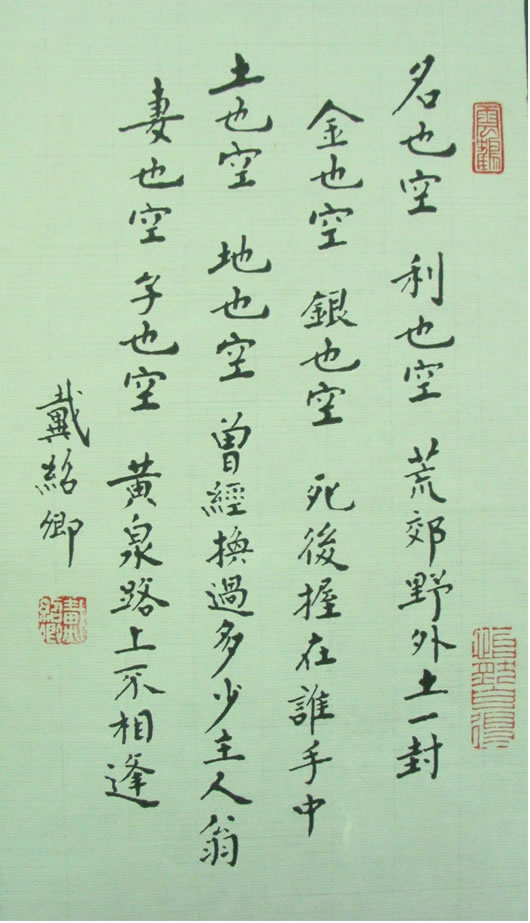 名也空 利也空 荒郊野外土一封
金也空 銀也空 死後握在誰手中
土也空 地也空 曾經換過多少主人翁
妻也空 子也空 黃泉路上不相逢
戴紹卿